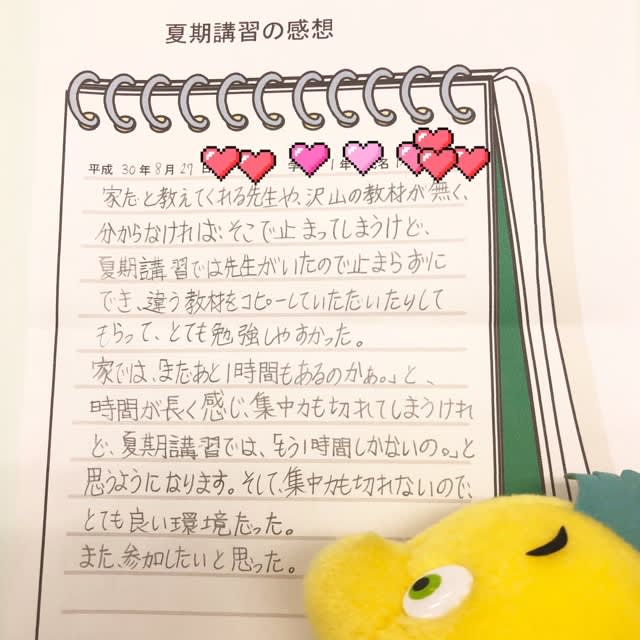 夏期講習の感想
平成 30 年 8 月 29 日 学 1 年 名
家だと教えてくれる先生や、沢山の教材が無く、
分からなければそこで止まってしまうけど、
夏期講習では先生がいたので止まらずに
でき、違う教材をコピーしていただいたりして
もらって、とても勉強しやすかった。
家では、「まだあと1時間もあるのかぁ。」と、
時間が長く感じ、集中力も切れてしまうけれ
ど、夏期講習では、「もう1時間しかないの。」と
思うようになります。そして、集中力も切れないので、
とても良い環境だった。
また、参加したいと思った。